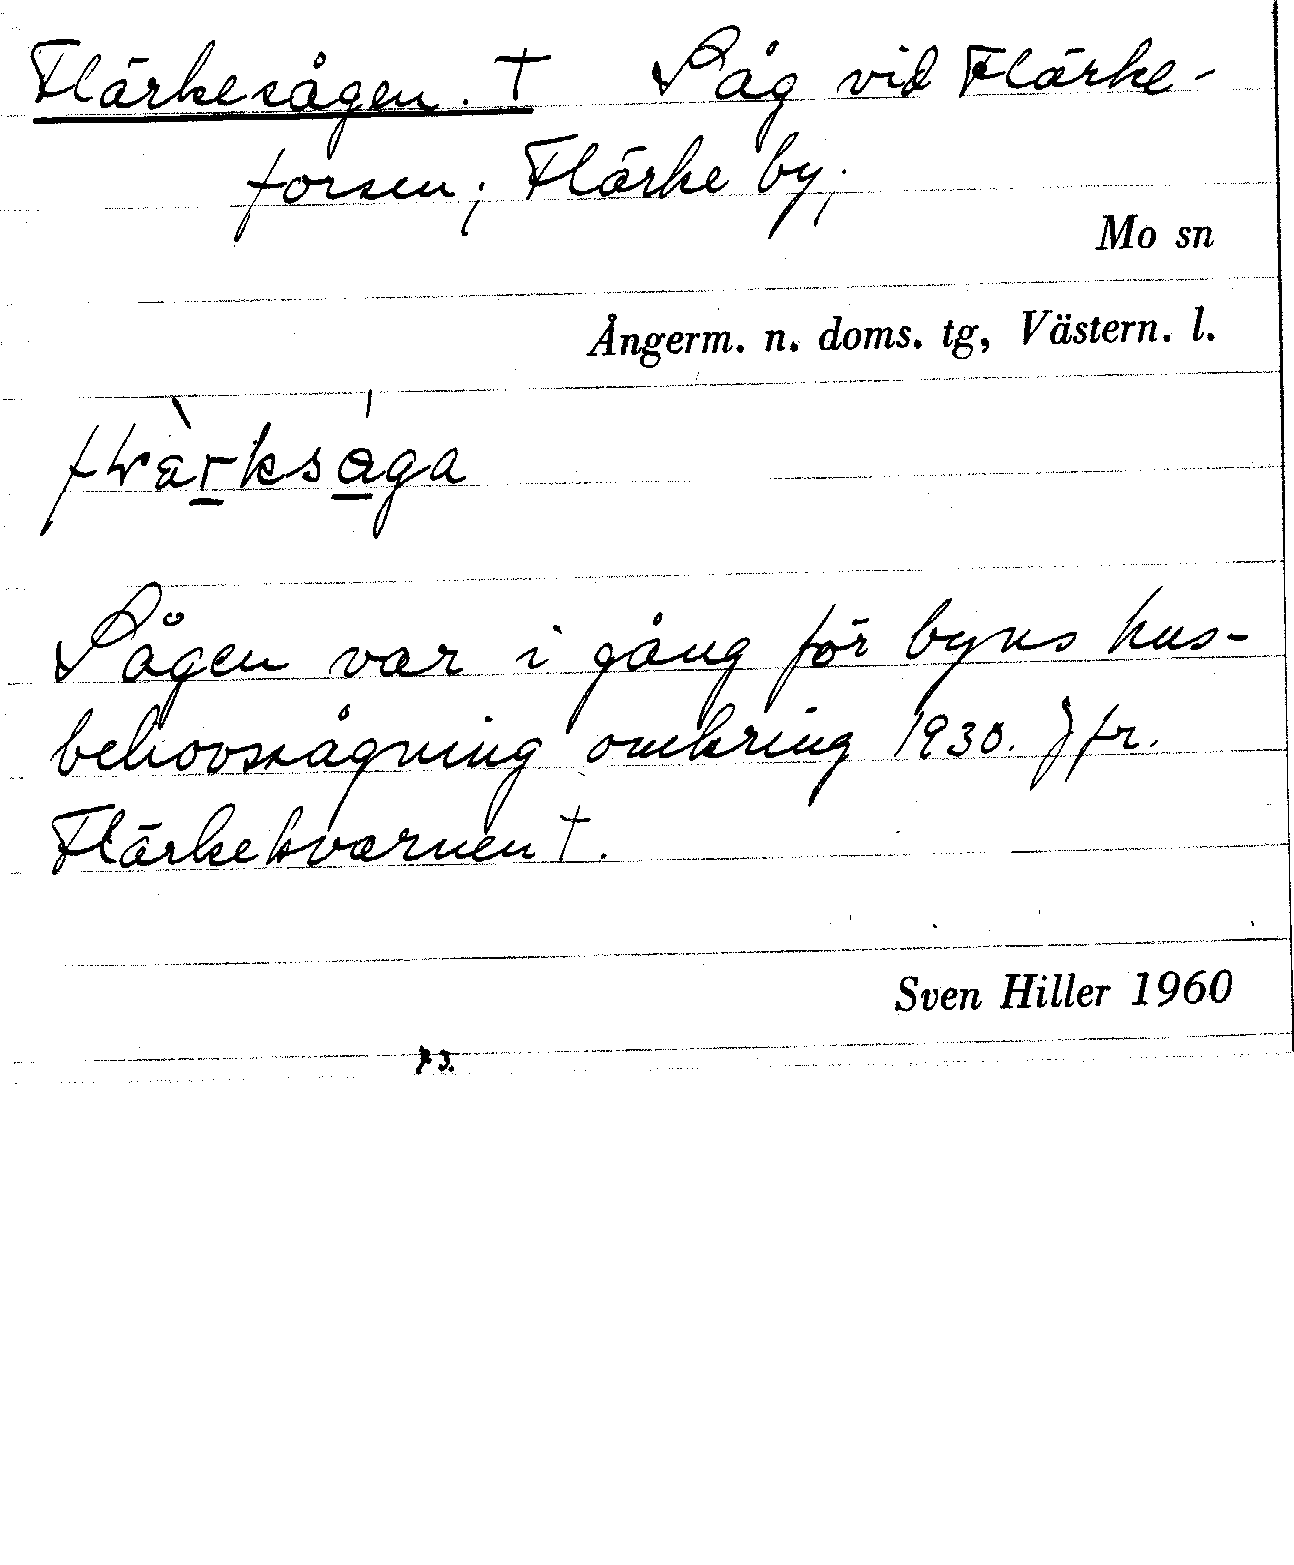 Flärkesågen. † Såg vid Flärke-
forsen; Flärke by;
Mo sn
Ångerm. n. doms. tg, Västern. l.
Sågen var i gång för byns hus-
behovssågning omkring 1930. Jfr.
Flärkekvarnen †.
Sven Hiller 1960